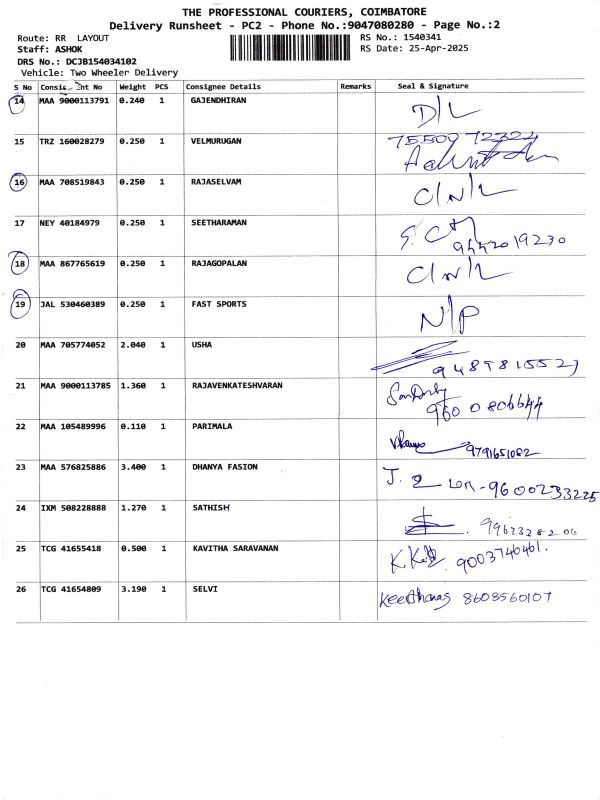 THE PROFESSIONAL COURIERS, COIMBATORE
Delivery Runsheet - PC2 - Phone No.:9047080280 - Page No.:2
Route: RR LAYOUT
RS No.: 1540341
Staff: ASHOK
RS Date: 25-Apr-2025
DRS No.: DCJB154034102
Vehicle: Two Wheeler Delivery
S No Consignment No Weight PCS Consignee Details Remarks Seal & Signature
14 MAA 9000113791 0.240 1 GAJENDHIRAN D/L
15 TRZ 160028279 0.250 1 VELMURUGAN
16 MAA 708519843 0.250 1 RAJASELVAM C/N/L
17 NEY 40184979 0.250 1 SEETHARAMAN
18 MAA 867765619 0.250 1 RAJAGOPALAN C/N/L
19 JAL 530460389 0.250 1 FAST SPORTS N/P
20 MAA 705774052 2.040 1 USHA 9489815523
21 MAA 9000113785 1.360 1 RAJAVENKATESHVARAN 9600806644
22 MAA 105489996 0.110 1 PARIMALA 9791651082
23 MAA 576825886 3.400 1 DHANYA FASION 9600233225
24 IXM 508228888 1.270 1 SATHISH
25 TCG 41655418 0.500 1 KAVITHA SARAVANAN 9003740461.
26 TCG 41654809 3.190 1 SELVI Keerthanas 8608560107